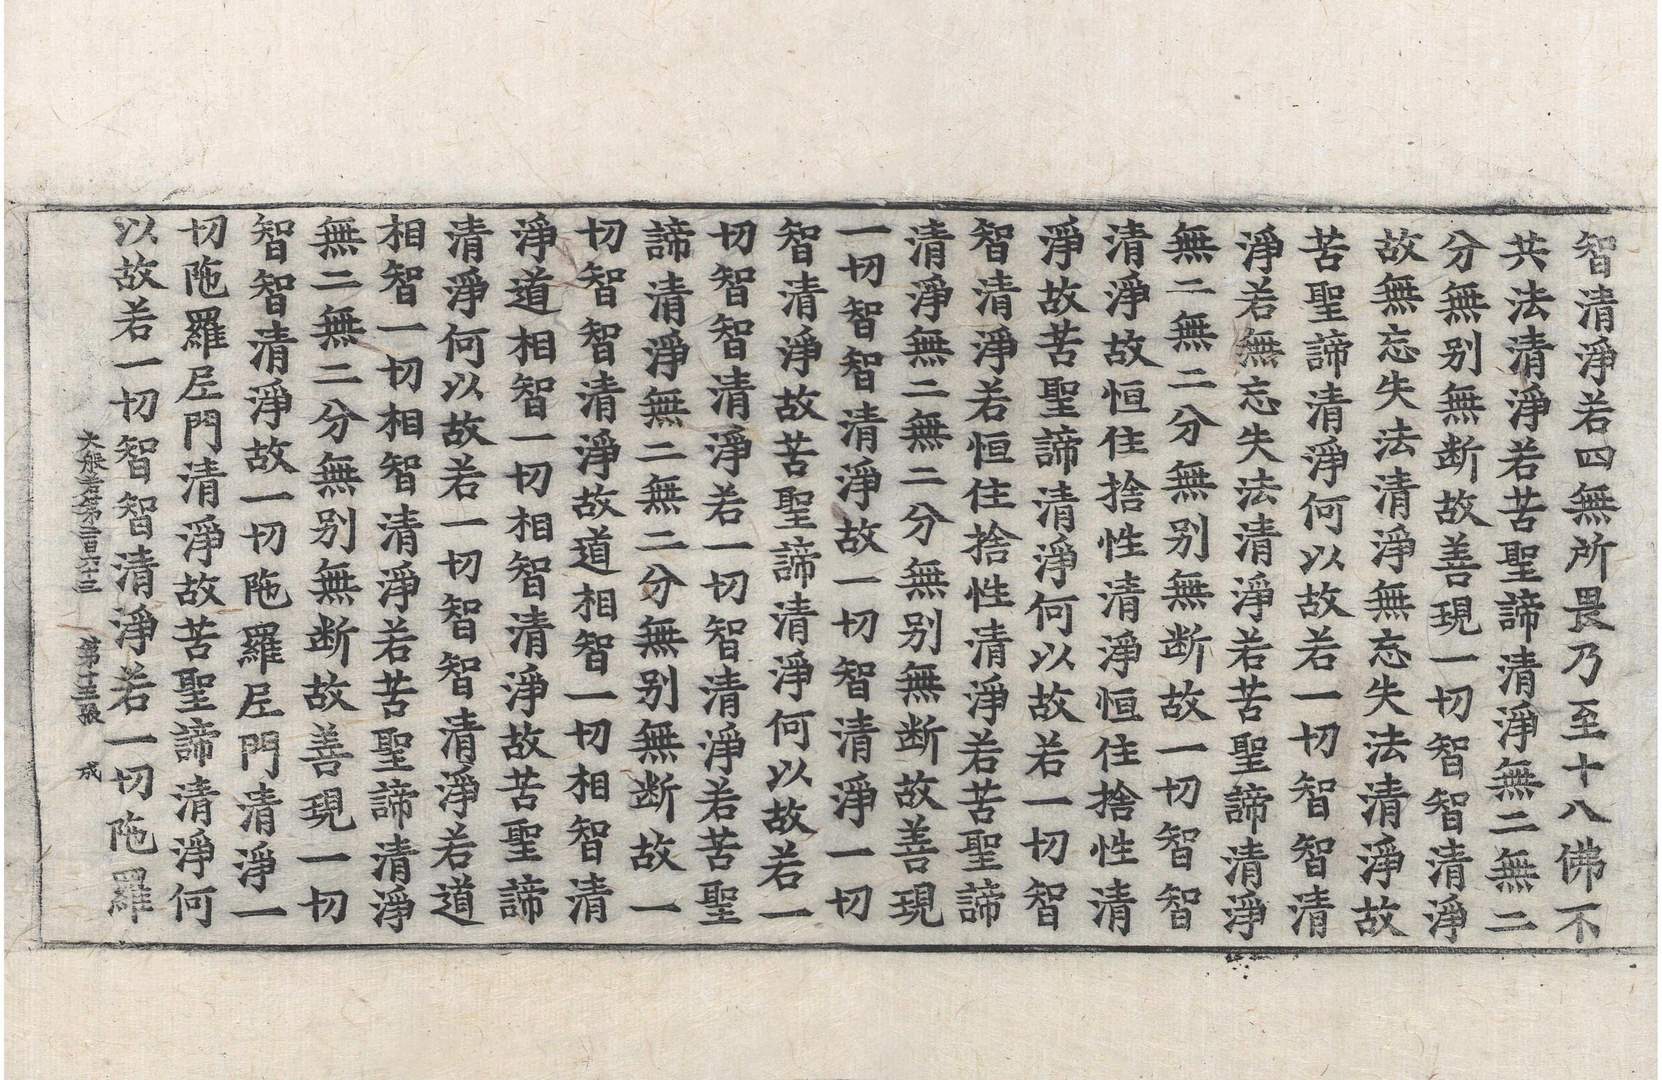 智清淨若四無所畏乃至十八佛不
共法清淨若苦聖諦清淨無二無二
分無别無断故善現一切智智清淨
故無忘失法清淨無忘失法清淨故
苦聖諦清淨何以故若一切智智清
淨若無忘失法清淨若苦聖諦清淨
無二無二分無别無断故一切智智
清淨故恒住捨性清淨恒住捨性清
淨故苦聖諦清淨何以故若一切智
智清淨若恒住捨性清淨若苦聖諦
清淨無二無二分無别無断故善現
一切智智清淨故一切智清淨一切
智清淨故苦聖諦清淨何以故若一
切智智清淨若一切智清淨若苦聖
諦清淨無二無二分無别無断故一
切智智清淨故道相智一切相智清
淨道相智一切相智清淨故苦聖諦
清淨何以故若一切智智清淨若道
相智一切相智清淨若苦聖諦清淨
無二無二分無别無断故善現一切
智智清淨故一切陁羅尼門清淨一
切陁羅尼門清淨故苦聖諦清淨何
以故若一切智智清淨若一切陁羅
大般若第二百六十三 第十三張 成